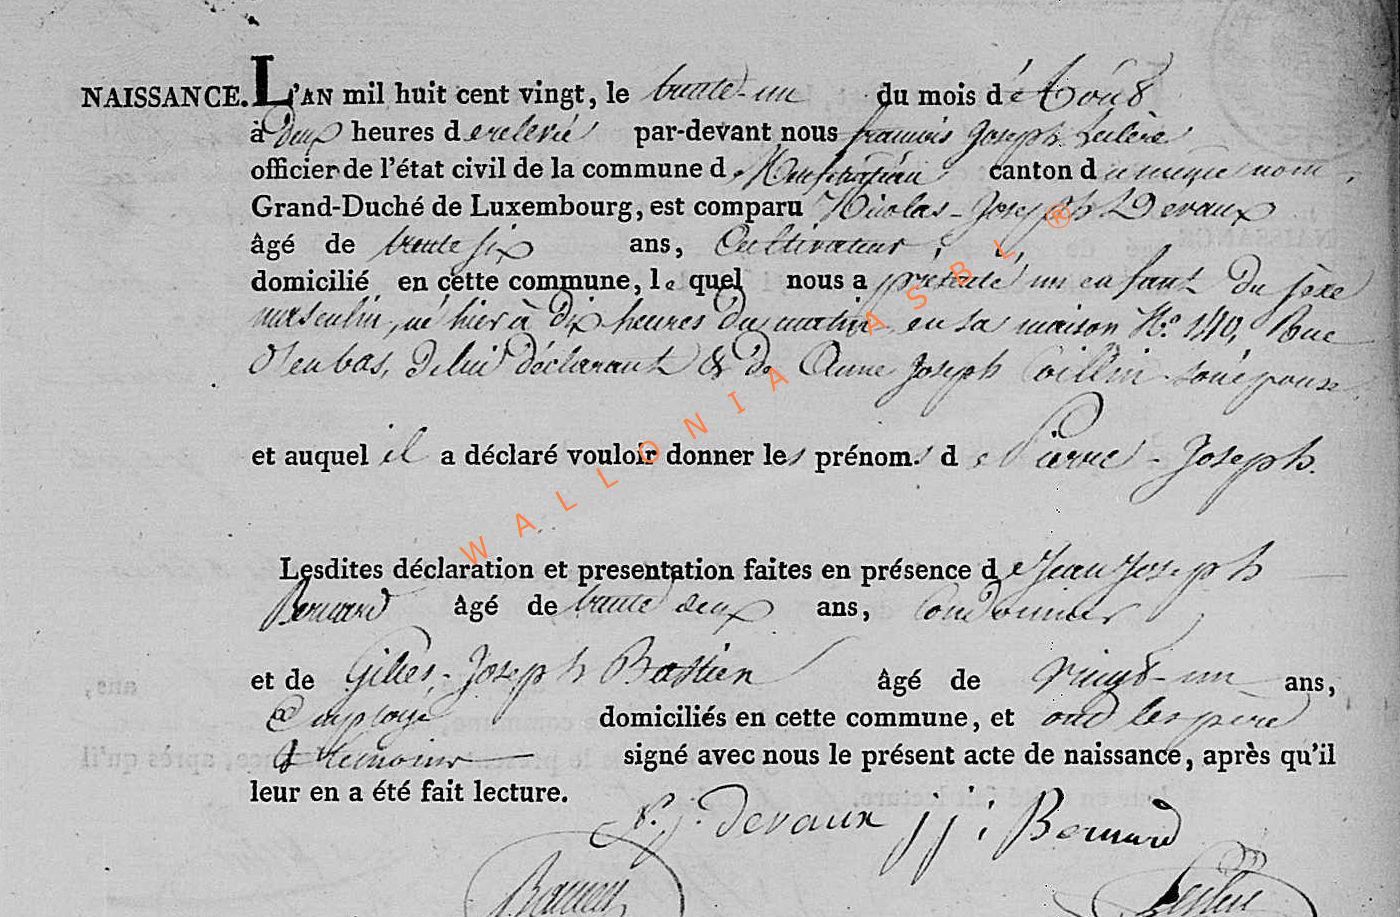 NAISSANCE. L'AN mil huit cent vingt, le trente-un du mois d'Août
à deux heures de relevée par-devant nous françois Joseph Leclère
officier de l'état civil de la commune de Neufchâteau canton du même nom,
Grand-Duché de Luxembourg, est comparu Nicolas-Joseph Devaux
âgé de trente six ans, Cultivateur,
domicilié en cette commune, lequel nous a présenté un enfant du sexe
masculin, né hier à dix heures du matin en sa maison No. 140, Rue
d'enbas, de lui déclarant & de Anne Joseph son épouse
et auquel il a déclaré vouloir donner les prénoms de Pierre-Joseph.
Lesdites déclaration et presentation faites en présence de Jean Joseph
Bernard âgé de trente deux ans, Cordonnier
et de Gilles-Joseph Bastien âgé de vingt-un ans,
Employé domiciliés en cette commune, et ont les père
& témoins signé avec nous le présent acte de naissance, après qu'il
leur en a été fait lecture.
n. j. Devaux j j Bernard
WALLONIA ASBL ®